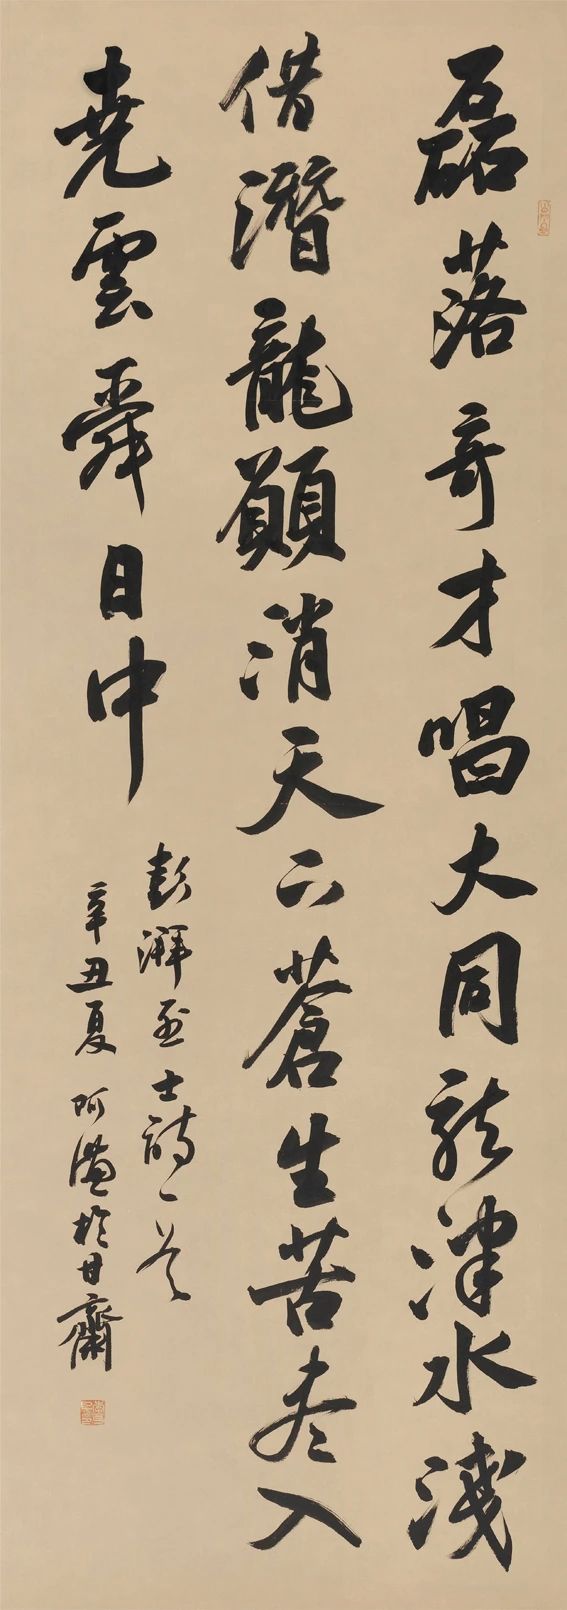 磊落奇才唱大同龍津水淺
借潛龍願消天下蒼生苦盡入
堯雲舜日中
彭湃烈士詩一首
辛丑夏阿於甘齋